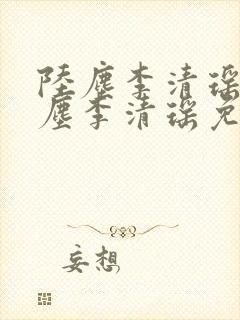 陸塵李清瑤
塵李清瑤免
妄想